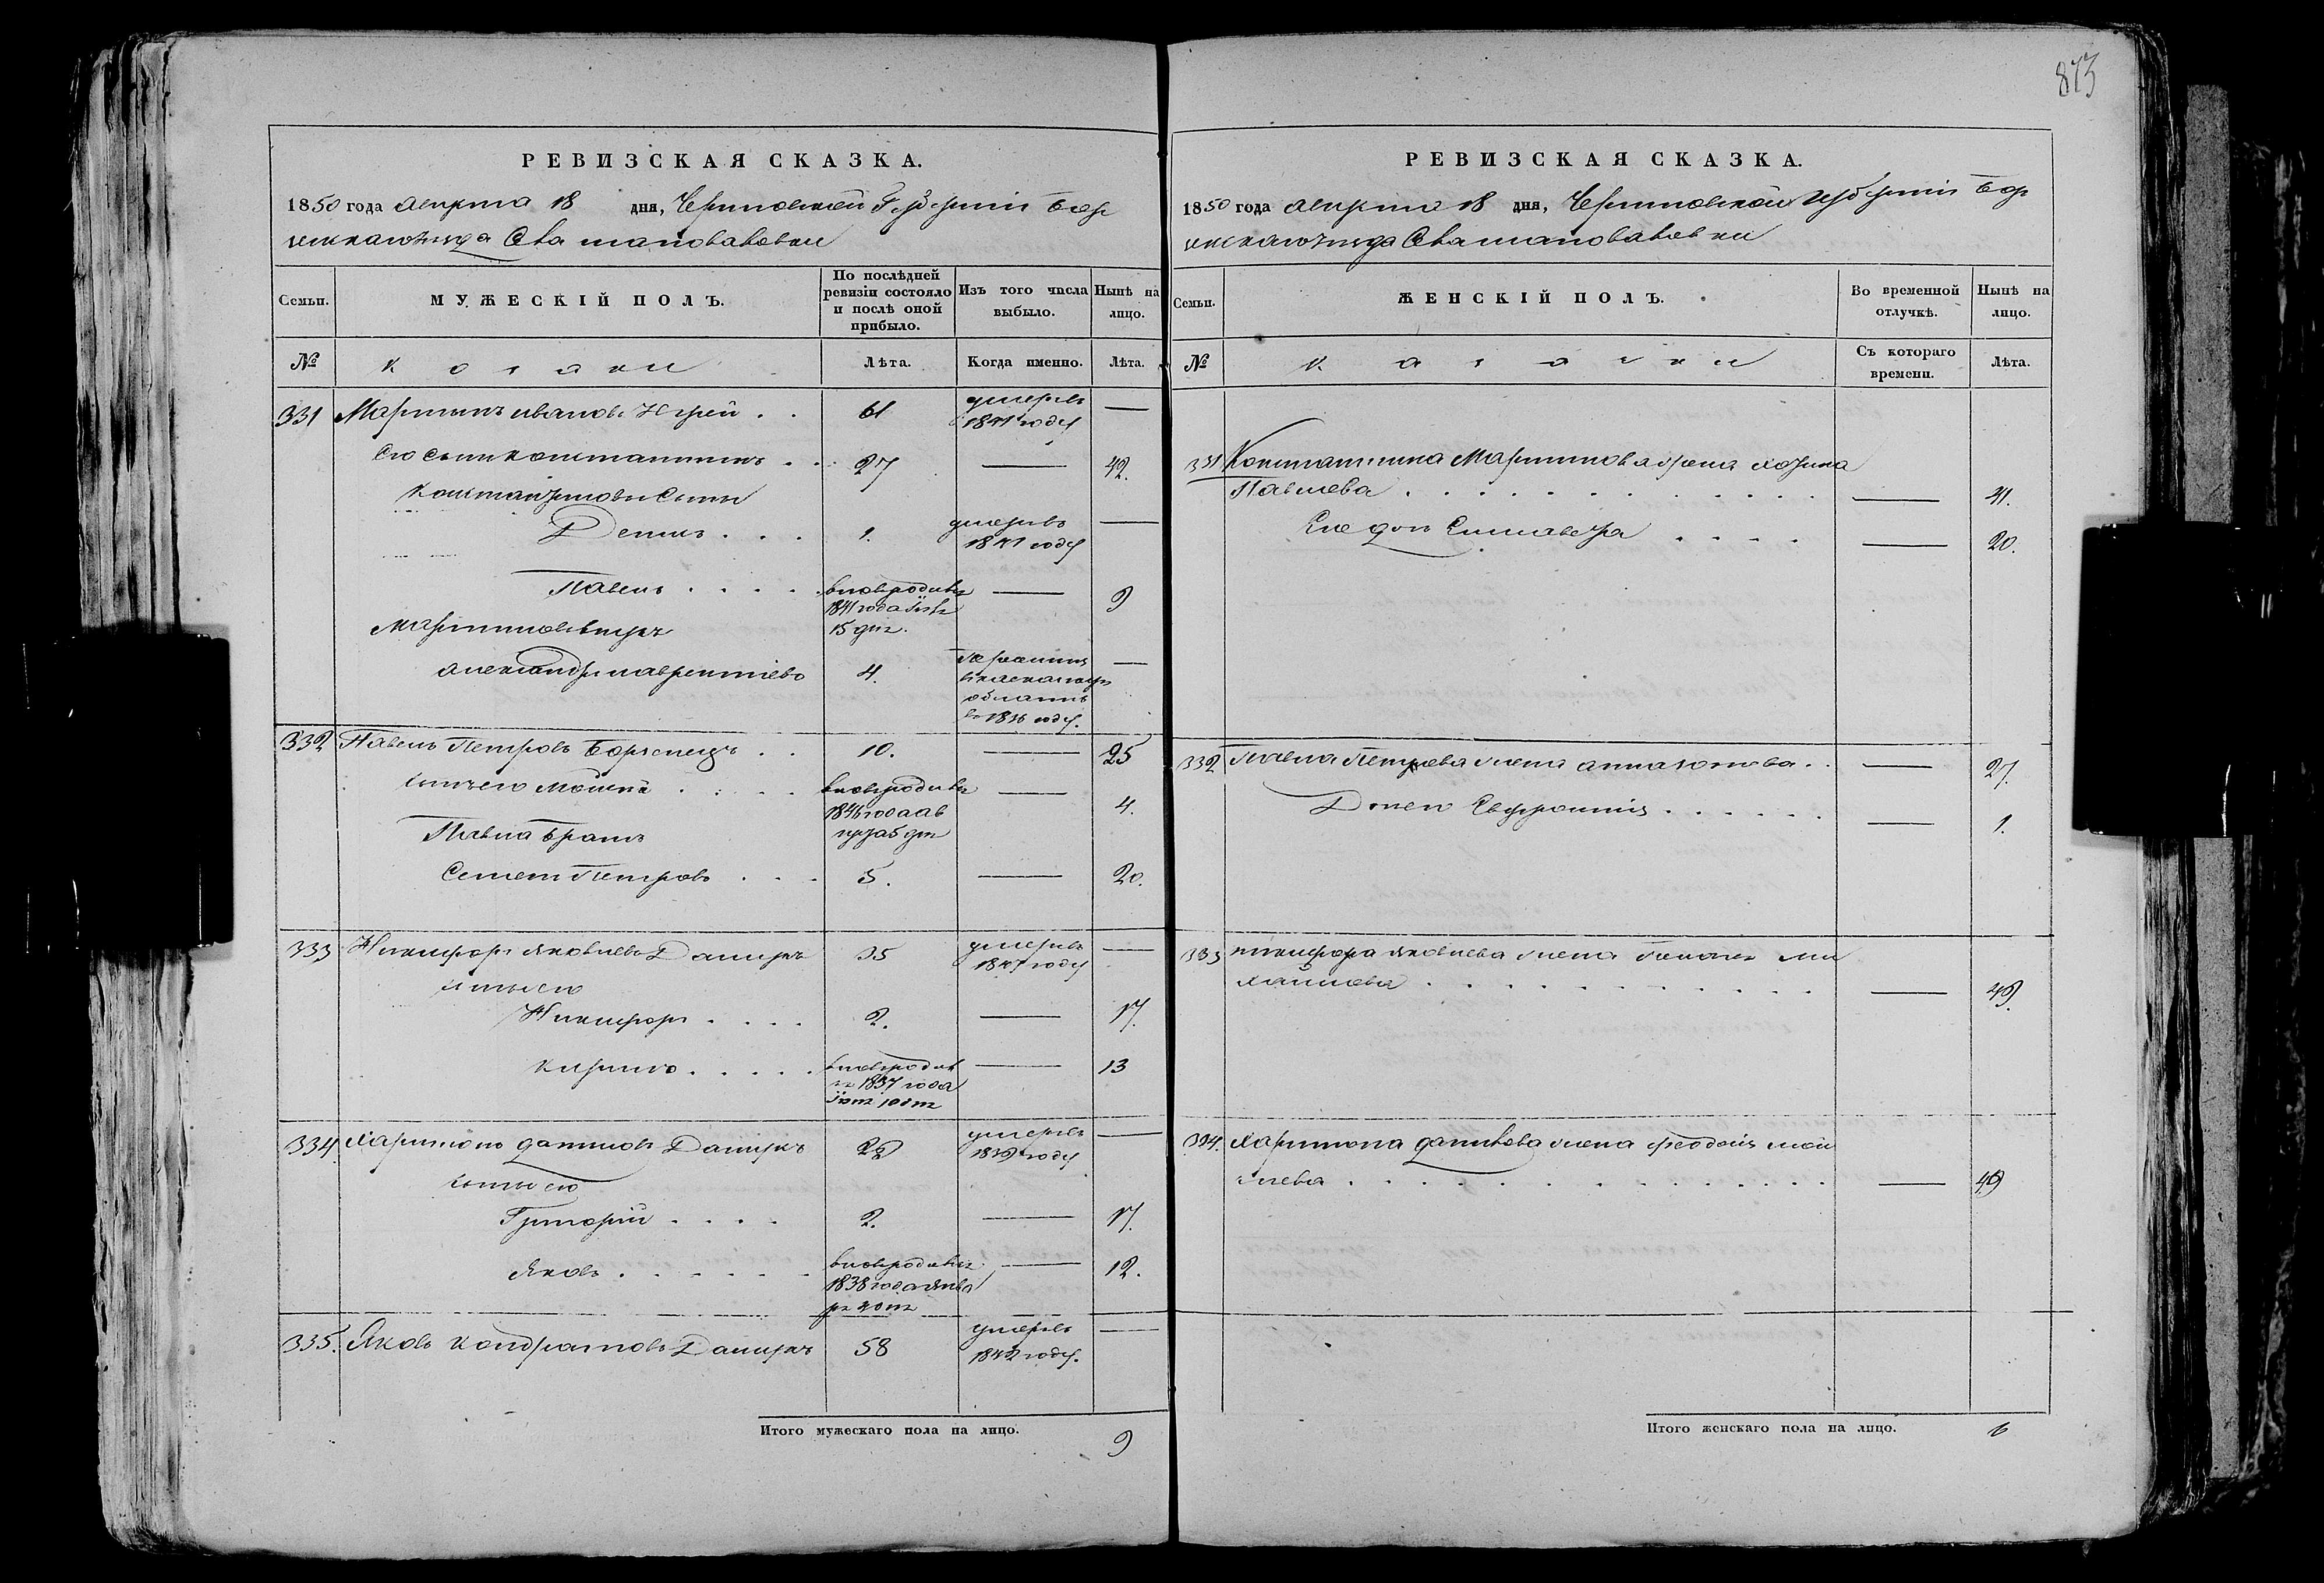 873
РЕВИЗСКАЯ СКАЗКА.
1850 года августа 18 дня, Черниговской Губерніи Бор
зенского уезда
МУЖЕСКІЙ ПОЛЪ.
Семьи.
По послѣдней ревизіи состояло и послѣ оной прибыло.
Изъ того числа выбыло.
Нынѣ на лицо.
№
Козаки
Лѣта.
Когда именно.
Лѣта.
331 Мартынъ Ивановъ . . 61 умеръ въ 1841 году —
Его сынъ Константинъ . . 27 — 42.
Константиновы сыны
Денисъ . . . 1. умеръ въ 1841 году —
Павелъ . . . . внов родивш 1841 года 15 дня. — 9
Мартыновъ внукъ
Александръ Лаврентіевъ 4. области въ 1836 году. —
332 Павелъ Петровъ . . 10. — 25
сынъ его Моисей . . . . внов родивш 1846 года ав густа 5 дня — 4.
Павла братъ
Семенъ Петровъ . . . 5. — 20.
333 Никифоръ Яковлевъ Дацукъ 35 умеръ въ 1847 году —
сыны его
Никифоръ . . . . 2. — 17.
Кирило . . . . . внов родив ся 1837 года 10 дня — 13
334. Харитонъ Даниловъ Дацукъ 28 умеръ въ 1839 году —
сыны его
Григорій . . . . 2. — 17.
Яковъ . . . . . . внов родивш 1838 года Янва ря 20 дня — 12.
335. Яковъ Кондратовъ Дацукъ 58 умеръ въ 1842 году. —
Итого мужескаго пола на лицо. 9
РЕВИЗСКАЯ СКАЗКА.
1850 года августа 18 дня, Черниговской Губерніи Бор
зенского уезда
Семьи.
ЖЕНСКІЙ ПОЛЪ.
Во временной отлучкѣ.
Нынѣ на лицо.
№
Казачки
Съ котораго времени.
Лѣта.
331 Константина Мартынова жена
Павлова . . . . . — 41.
Ево дочь Елисавета . . . . — 20.
332 Павла Петрова жена Анна . . — 27.
Дочь Евфросинія . . . . . — 1.
333 Никифора Яковлева жена Ми
хайлова . . . . . — 49.
334. Харитона Данилова жена Феодосія Мои
сеева . . . . . — 49
Итого женскаго пола на лицо. 6